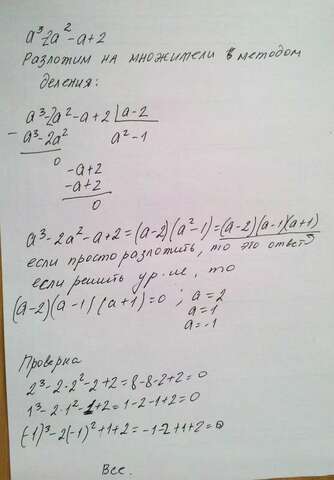 a³-2a²-a+2
Разложим на множители методом
деления:
a³-2a²-a+2 | a-2
- a³-2a² a²-1
0
-a+2
-a+2
0
a³-2a²-a+2=(a-2)(a²-1)=(a-2)(a-1)(a+1)
если просто разложить, то это ответ
если решить ур-ие, то
(a-2)(a-1)(a+1)=0 ; a=2
a=1
a=-1
Проверка
2³-2·2²-2+2=8-8-2+2=0
1³-2·1²-1+2=1-2-1+2=0
(-1)³-2(-1)²+1+2=-1-2+1+2=0
Все.